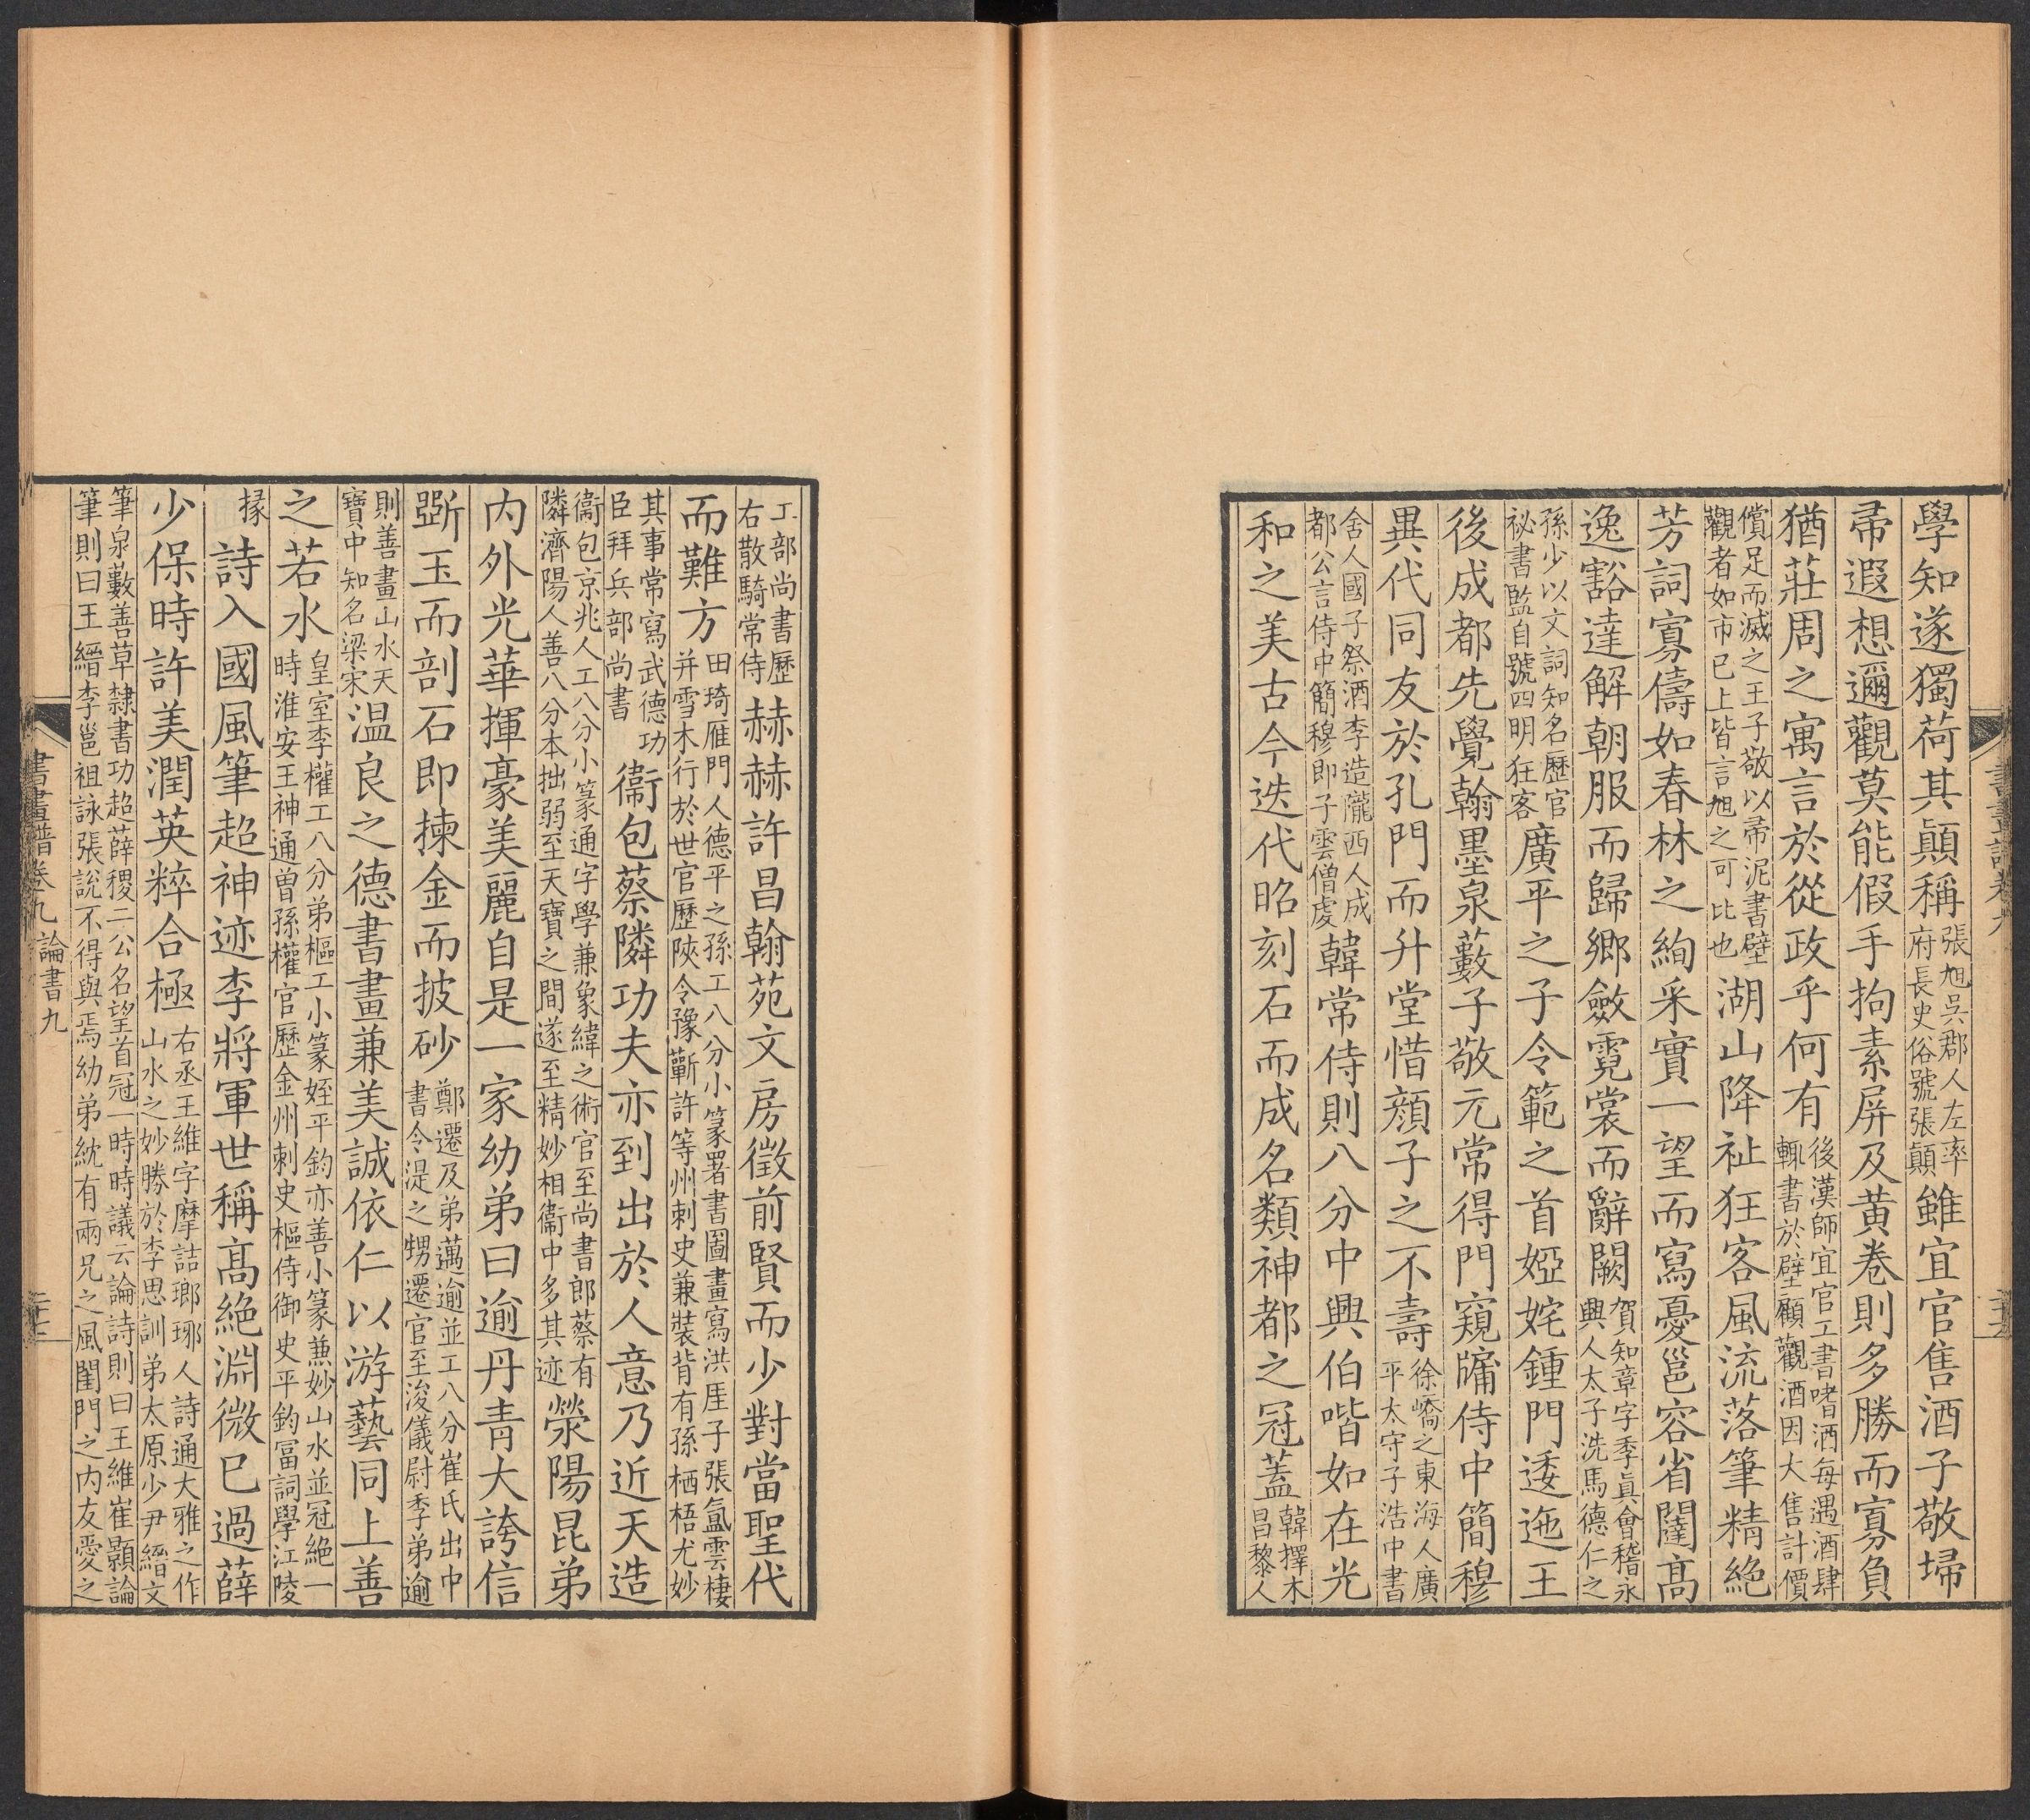 學知遂獨荷其顛稱張旭吳郡人左率府長史俗號張顛雖宜官售酒子敬埽
帚遐想邇觀莫能假手拘素屏及黄卷則多勝而寡負
猶莊周之寓言於從政乎何有後漢師宜官工書嗜酒每遇酒肆輒書於壁顧觀酒因大售計價
償足而滅之王子敬以帚泥書壁觀者如市已上皆言旭之可比也湖山降祉狂客風流落筆精絶
芳詞寡儔如春林之絢采實一望而寫憂邕容省闥高
逸豁達解朝服而歸鄉斂霓裳而辭闕賀知章字季眞會稽永興人太子洗馬德仁之
孫少以文詞知名歷官祕書監自號四明狂客廣平之子令範之首婭姹鍾門逶迤王
後成都先覺翰墨泉藪子敬元常得門窺牖侍中簡穆
異代同友於孔門而升堂惜顔子之不壽徐嶠之東海人廣平太守子浩中書
舍人國子祭酒李造隴西人成都公言侍中簡穆即子雲僧虔韓常侍則八分中興伯喈如在光
和之美古今迭代昭刻石而成名類神都之冠蓋韓擇木昌黎人
書畫譜卷九
工部尚書歷右散騎常侍赫赫許昌翰苑文房徵前賢而少對當聖代
而難方田琦雁門人德平之孫工八分小篆署書圖畫寫洪厓子張氲雲棲并雪木行於世官歷陜令豫蘄許等州刺史兼裝背有孫栖梧尤妙
其事常寫武德功臣拜兵部尚書衞包蔡隣功夫亦到出於人意乃近天造
衞包京兆人工八分小篆通字學兼象緯之術官至尚書郎蔡有隣濟陽人善八分本拙弱至天寶之間遂至精妙相衞中多其迹滎陽昆弟
内外光華揮豪美麗自是一家幼弟曰逾丹青大誇信
斵玉而剖石即揀金而披砂鄭遷及弟邁逾並工八分崔氏出中書令湜之甥遷官至浚儀尉季弟逾
則善畫山水天寶中知名梁宋温良之德書畫兼美誠依仁以游藝同上善
之若水皇室李權工八分弟樞工小篆姪平鈞亦善小篆兼妙山水並冠絶一時淮安王神通曾孫權官歷金州刺史樞侍御史平鈞冨詞學江陵
掾詩入國風筆超神迹李將軍世稱高絶淵微已過薛
少保時許美潤英粹合極右丞王維字摩詰瑯琊人詩通大雅之作山水之妙勝於李思訓弟太原少尹縉文
筆泉藪善草隸書功超薛稷二公名望首冠一時時議云論詩則曰王維崔顥論筆則曰王縉李邕祖詠張說不得與焉幼弟紞有兩兄之風閨門之内友愛之
書畫譜卷九 論書九